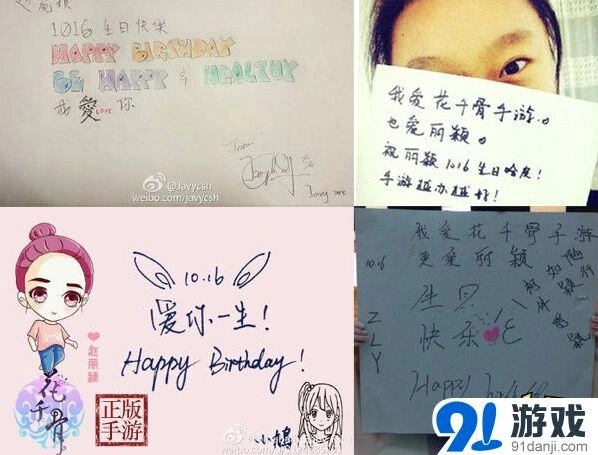 赵丽颖
1016 生日快樂
HAPPY BIRTHDAY
BE HAPPY & HEALTHY
我愛你
LOVE
@Javycsh
weibo.com/javycsh
我爱花千骨手游。
也爱丽颖。
祝丽颖10.16生日哈皮!
手游越办越好!
10.16
愛你一生!
Happy Birthday!
赵丽颖
花千骨
正版
手游
小鳩
我爱花千骨手游
更爱丽颖
10.16
生日
快乐
ZLY
Happy
91游戏
91danji.com